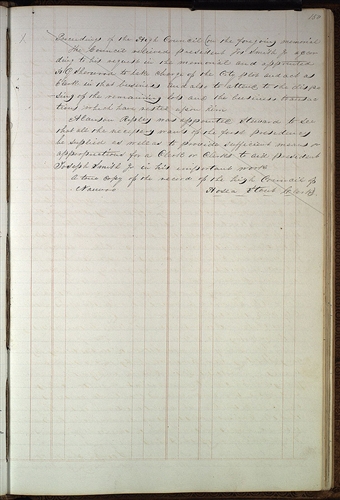 150
Proceedings of the High Council on the foregoing memorial
The Council relieved president Jos Smith Jr accor
ding to his request in the memorial and appointed
H. G. Sherwood to take charge of the City plot and act as
Clerk in that business and also to attend to the dispo
sing of the remaining lots and the business transac
tions which have rested upon him
Alanson Ripley was appointed Steward to see
that all the necessary wants of the first presidency
be supplied as well as to provide sufficient means &
appropriations for a Clerk or Clerks to aid president
Joseph Smith Jr in his important work
A true copy of the record of the high Council of
Nauvoo Hosea Stout Clerk